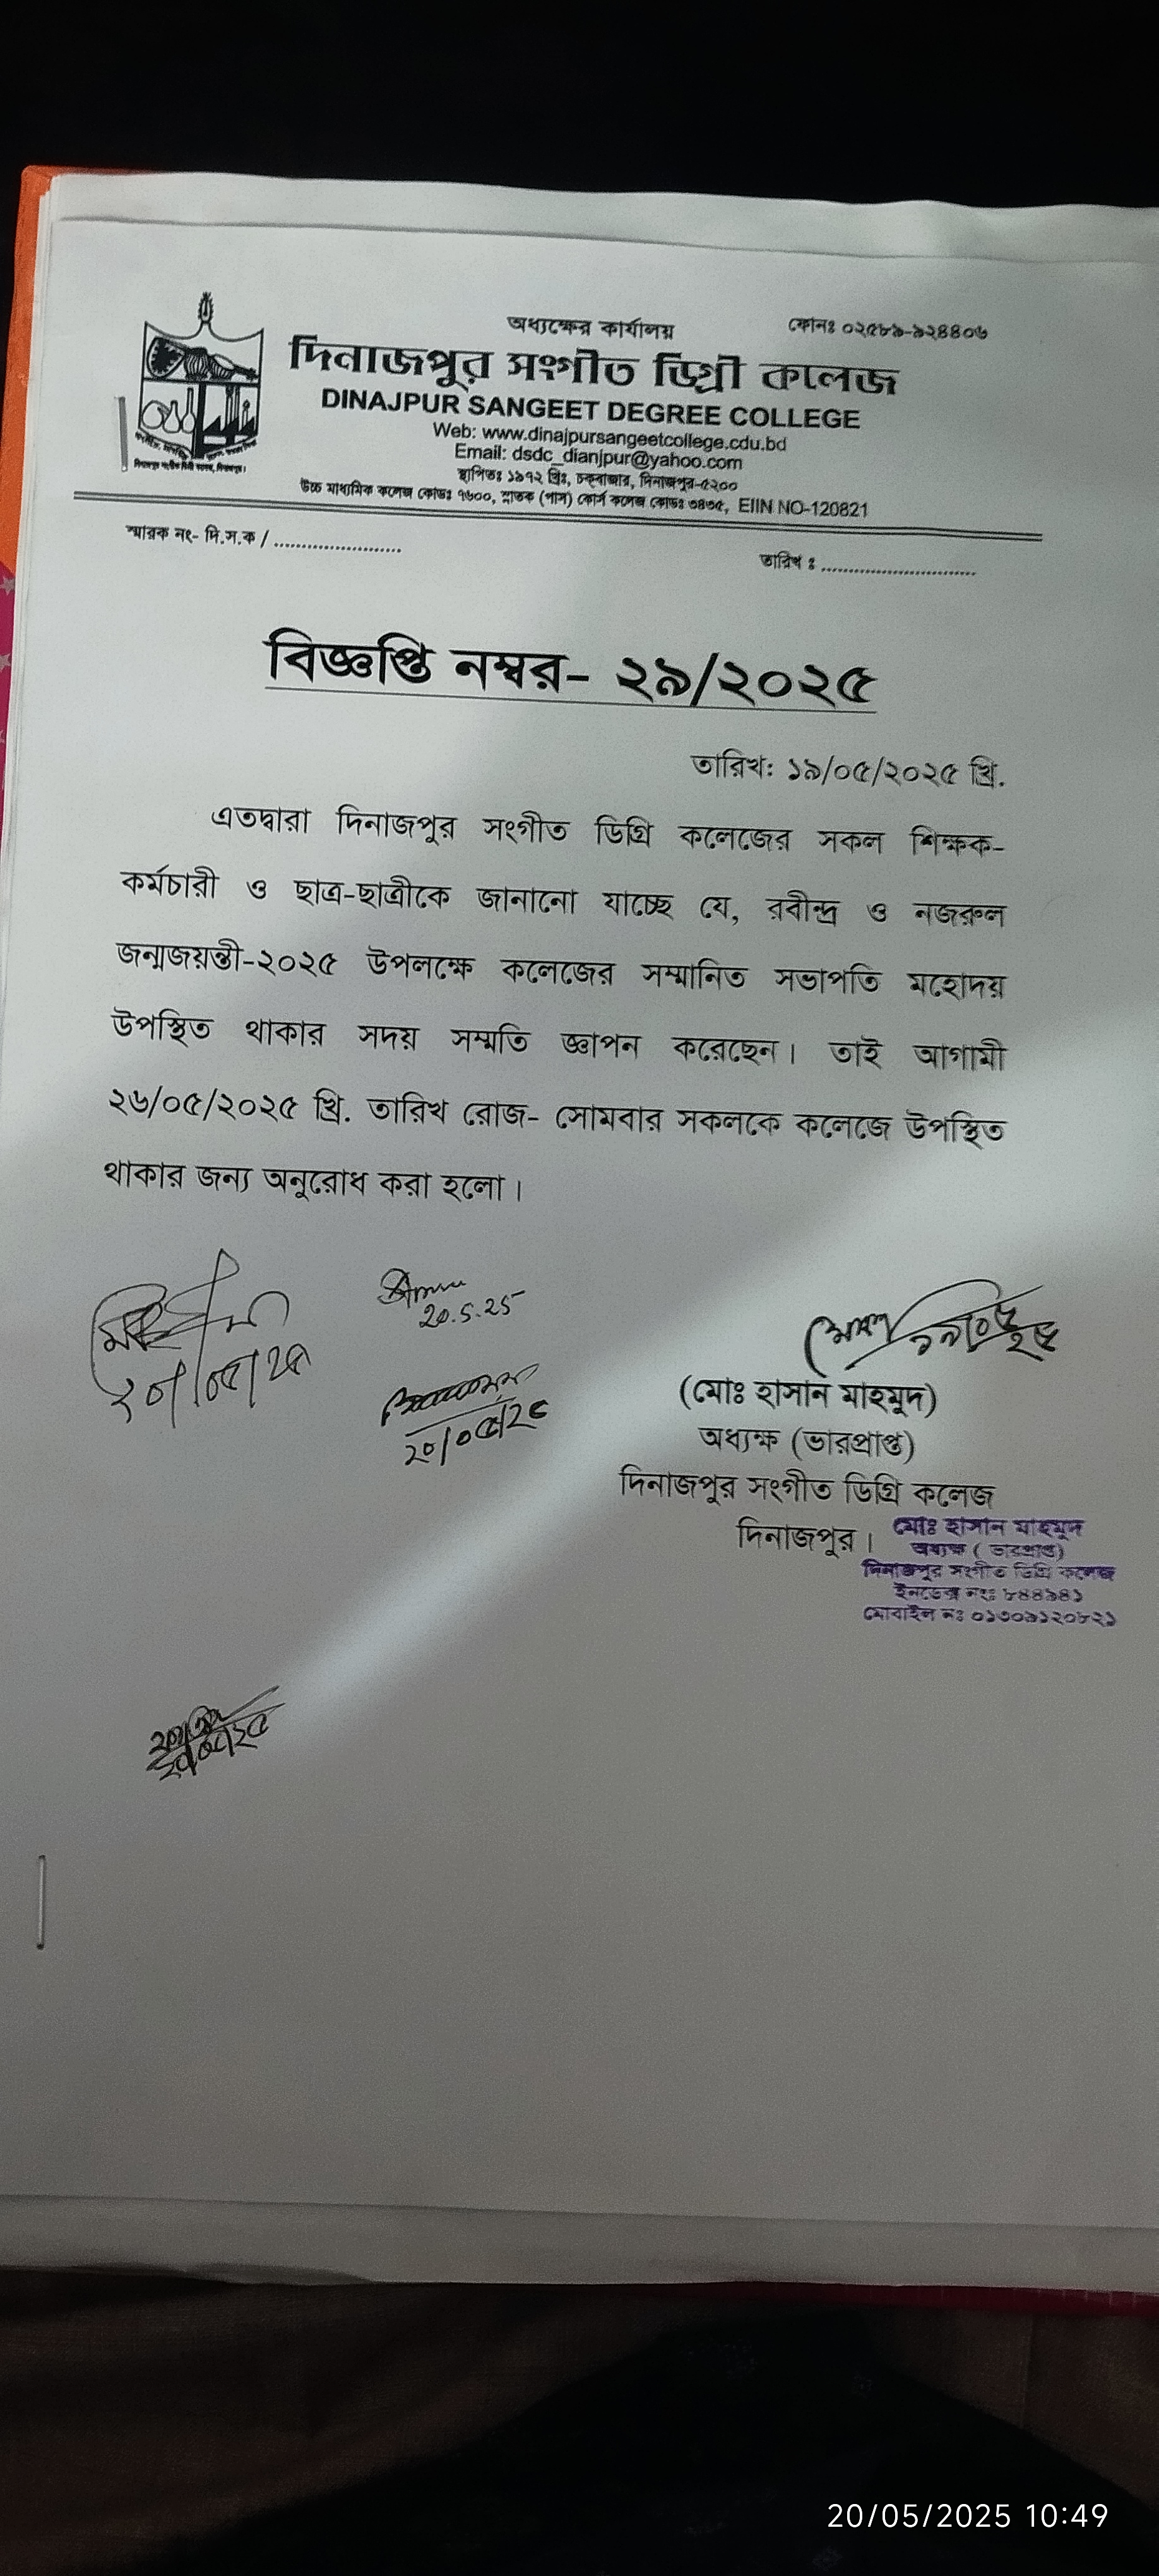 অধ্যক্ষের কার্যালয়
ফোনঃ ০২৫৮৯-৯২৪৪০৬
দিনাজপুর সংগীত ডিগ্রী কলেজ
DINAJPUR SANGEET DEGREE COLLEGE
Web: www.dinajpursangeetcollege.cdu.bd
Email: dsdc_dianjpur@yahoo.com
স্থাপিতঃ ১৯৭২ খ্রিঃ, চকবাজার, দিনাজপুর-৫২০০
উচ্চ মাধ্যমিক কলেজ কোডঃ ৭৬০০, স্নাতক (পাস) কোর্স কলেজ কোডঃ ৩৪৩৫, EIIN NO-120821
স্মারক নং- দি.স.ক / ........................
তারিখ ঃ ............................
বিজ্ঞপ্তি নম্বর- ২৯/২০২৫
তারিখ: ১৯/০৫/২০২৫ খ্রি.
এতদ্বারা দিনাজপুর সংগীত ডিগ্রি কলেজের সকল শিক্ষক-
কর্মচারী ও ছাত্র-ছাত্রীকে জানানো যাচ্ছে যে, রবীন্দ্র ও নজরুল
জন্মজয়ন্তী-২০২৫ উপলক্ষে কলেজের সম্মানিত সভাপতি মহোদয়
উপস্থিত থাকার সদয় সম্মতি জ্ঞাপন করেছেন। তাই আগামী
২৬/০৫/২০২৫ খ্রি. তারিখ রোজ- সোমবার সকলকে কলেজে উপস্থিত
থাকার জন্য অনুরোধ করা হলো।
২০/০৫/২৫
20.5.25
২০/০৫/২৫
১৯/০৫/২৫
(মোঃ হাসান মাহমুদ)
অধ্যক্ষ (ভারপ্রাপ্ত)
দিনাজপুর সংগীত ডিগ্রি কলেজ
দিনাজপুর।
মোঃ হাসান মাহমুদ
অধ্যক্ষ ( ভারপ্রাপ্ত)
দিনাজপুর সংগীত ডিগ্রি কলেজ
ইনডেক্স নংঃ ৮৪৪৯৪১
মোবাইল নঃ ০১৩০৯১২০৮২১
20/05/2025 10:49